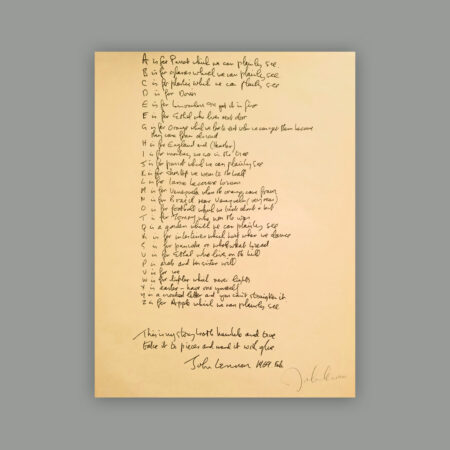 A is for Parrot which we can plainly see
B is for glasses which we can plainly see
C is for plastic which we can plainly see
D is for Doris
E is for binoculars I'll get it in five
F is for Ethel who lives next door
G is for orange which we love to eat when we can get them because
they come from abroad
H is for England and (Heather)
I is for monkey we see in the tree
J is for parrot which we can plainly see
K is for shoetop we wear to the ball
L is for because brown
M is for Venezuela where the oranges come from
N is for Brazil near Venezuela (very near)
O is for football which we kick about a bit
T is for Tommy who won the war
Q is a garden which we can plainly see
R is for intestines which hurt when we dance
S is for pancake or whole wheat bread
U is for Ethel who lives on the hill
P is arab and her sister will
V is for me
W is for lighter which never lights
X is easter - have one yourself
Y is a crooked letter and you can't straighten it
Z is for Apple which we can plainly see
This is my story both humble and true
take it to pieces and mend it with glue
John Lennon 1969 Feb.
John Lennon